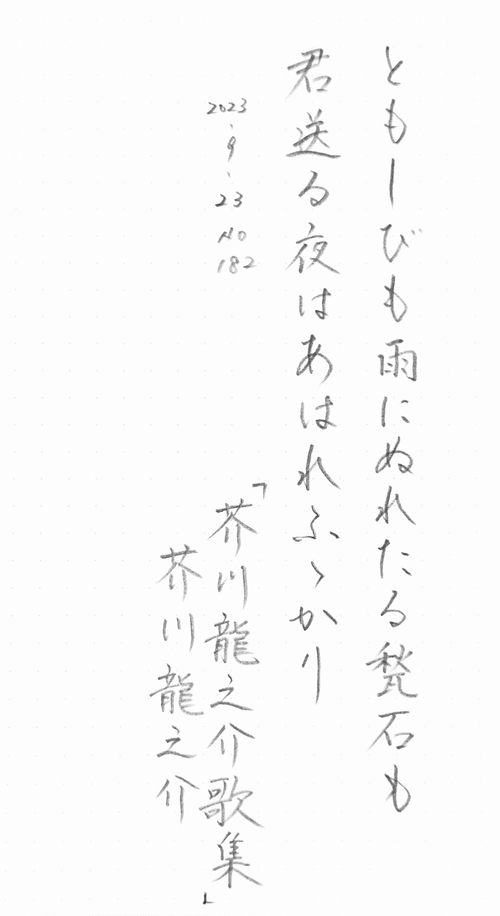 ともしびも雨にぬれたる甃石も
君送る夜はあはれふゝかり
「芥川龍之介歌集」
芥川龍之介
2023
.9
.23
No
182